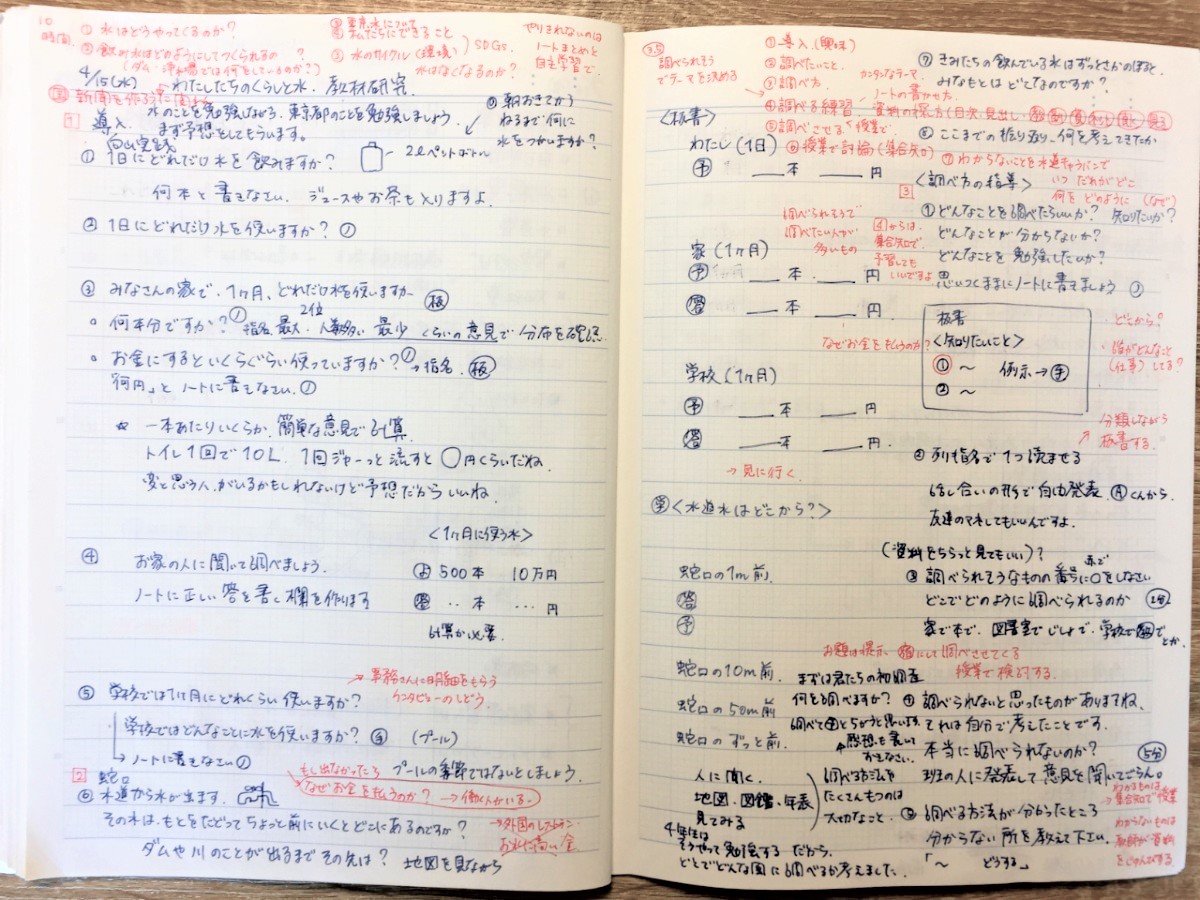 10時間
① 水はどうやってくるのか?
② 飲み水はどのようにしてつくられるの?
(ダム・浄水場では何をしているのか?)
③ 東京水について
④ 私たちにできること
⑤ 水のサイクル(環境) SDGs
水はなくなるのか?
やりきれないのは
ノートまとめと
自主学習で。
4/15(水) わたしたちのくらしと水 教材研究
新聞を作るために
水のことを勉強しながら、東京都のことを勉強しましょう。
まず予想をしてもらいます。
⓪ 朝おきてから
ねるまで何に
水をつかいますか?
1 導入
向山実践
① 1日にどれだけ水を飲みますか?
2ℓペットボトル
何本と書きなさい。ジュースやお茶も入りますよ。
② 1日にどれだけ水を使いますか?
③ みなさんの家で、1ヶ月、どれだけ水を使いますか 板
○ 何本分ですか? 指名 最大・2位 人数多い 最少 くらいの意見で分布を確認
○ お金にするといくらぐらい使っていますか? →指名 板
「何円」とノートに書きなさい。
☆ 一本あたりいくらか、簡単な意見で計算
トイレ1回で10L、1回ジャーっと流すと○円くらいだね
変と思う人がいるかもしれないけど予想だからいいね
<1ヶ月に使う水>
④ お家の人に聞いて調べましょう。
ノートに正しい答を書く欄を作ります
よ 500本 10万円
答 ‥本 …円
計算が必要
→事務さんに明細をもらう
インタビューのしどう
⑤ 学校では1ヶ月にどれくらい使いますか?
学校ではどんなことに水を使いますか? (プール)
→ノートに書きなさい
もし出なかったら プールの季節ではないとしましょう。
なぜお金を払うのか? →働く人がいる。
2 蛇口
⑥ 水道から水が出ます。
その水は、もとをたどってちょっと前にいくとどこにあるのですか?
→外国のレストラン
お水に高い金
ダムや川のことが出るまで その先は? 地図を見ながら
調べられそう
でテーマを決める
① 導入(興味)
② 調べたいこと
③ 調べ方 カンタンなテーマ
④ 調べる練習 ノートの書かせ方
資料の探し方(目次、見出し
⑤ 調べさせる 授業で
⑥ 授業で討論(集合知)
⑦ わからないことを水道キャラバンで
いつ だれが どこ
何を どのように (なぜ)
⑦ きみたちの飲んでいる水はずっとさかのぼると、
みなもとは どこなのですか?
⑧ ここまでの振り返り、何を考えてきたか
<板書>
わたし(1日)
予 __本 __円
家(1ヶ月)
予 __本 __円
答 __本 __円
調べられそうで
調べたい人が
多いもの
④からは、
集合知で
予習しても
いいですよ
なぜお金を払うのか?
学校(1ヶ月)
予 __本 __円
答 __本 __円
→見に行く
学<水道水はどこから?>
蛇口の1m前
答
予
蛇口の10m前
蛇口の50m前
蛇口のずっと前
人に聞く
地図・図鑑・年表
見てみる
調べる方法を
たくさんもつのは
大切なこと
4年生は
そうやって勉強する だから、
どこでどんな風に調べるか考えました。
3 <調べ方の指導>
① どんなことを調べたらいいか? 知りたいか?
どんなことが分からないか?
どんなことを勉強したいか?
思いつくままにノートに書きましょう
板書
<知りたいこと>
① ~ 例示→手
② ~
・どこから?
・誰がどんなこと
(仕事)してる?
分類しながら
板書する。
② 列指名で1つ読ませる
話し合いの形で自由発表、Aくんから。
友達のマネしてもいいんですよ。
(資料をちらっと見てもいい)?
③ 調べられそうなものの番号に赤で○をしなさい
どこでどのように調べられるのか
家で本で、図書室でじしょで、学校で
とか。
お題は提示 宿にして調べさせてくる
授業で検討する。
まずは君たちの初調査
何を調べますか?
調べて予とちがうと思います。
感想も書いて
おきなさい。
④ 調べられないと思ったものがありますね、
それは自分で考えたことです。
本当に調べられないのか? 5分
班の人に発表して意見を聞いてごらん。
⑤ 調べる方法が分かったところ
分からない所を教えて下さい。
「~ どうする」
わかるものは
→集合知で授業
わからないものは
教師が資料
をじゅんびする